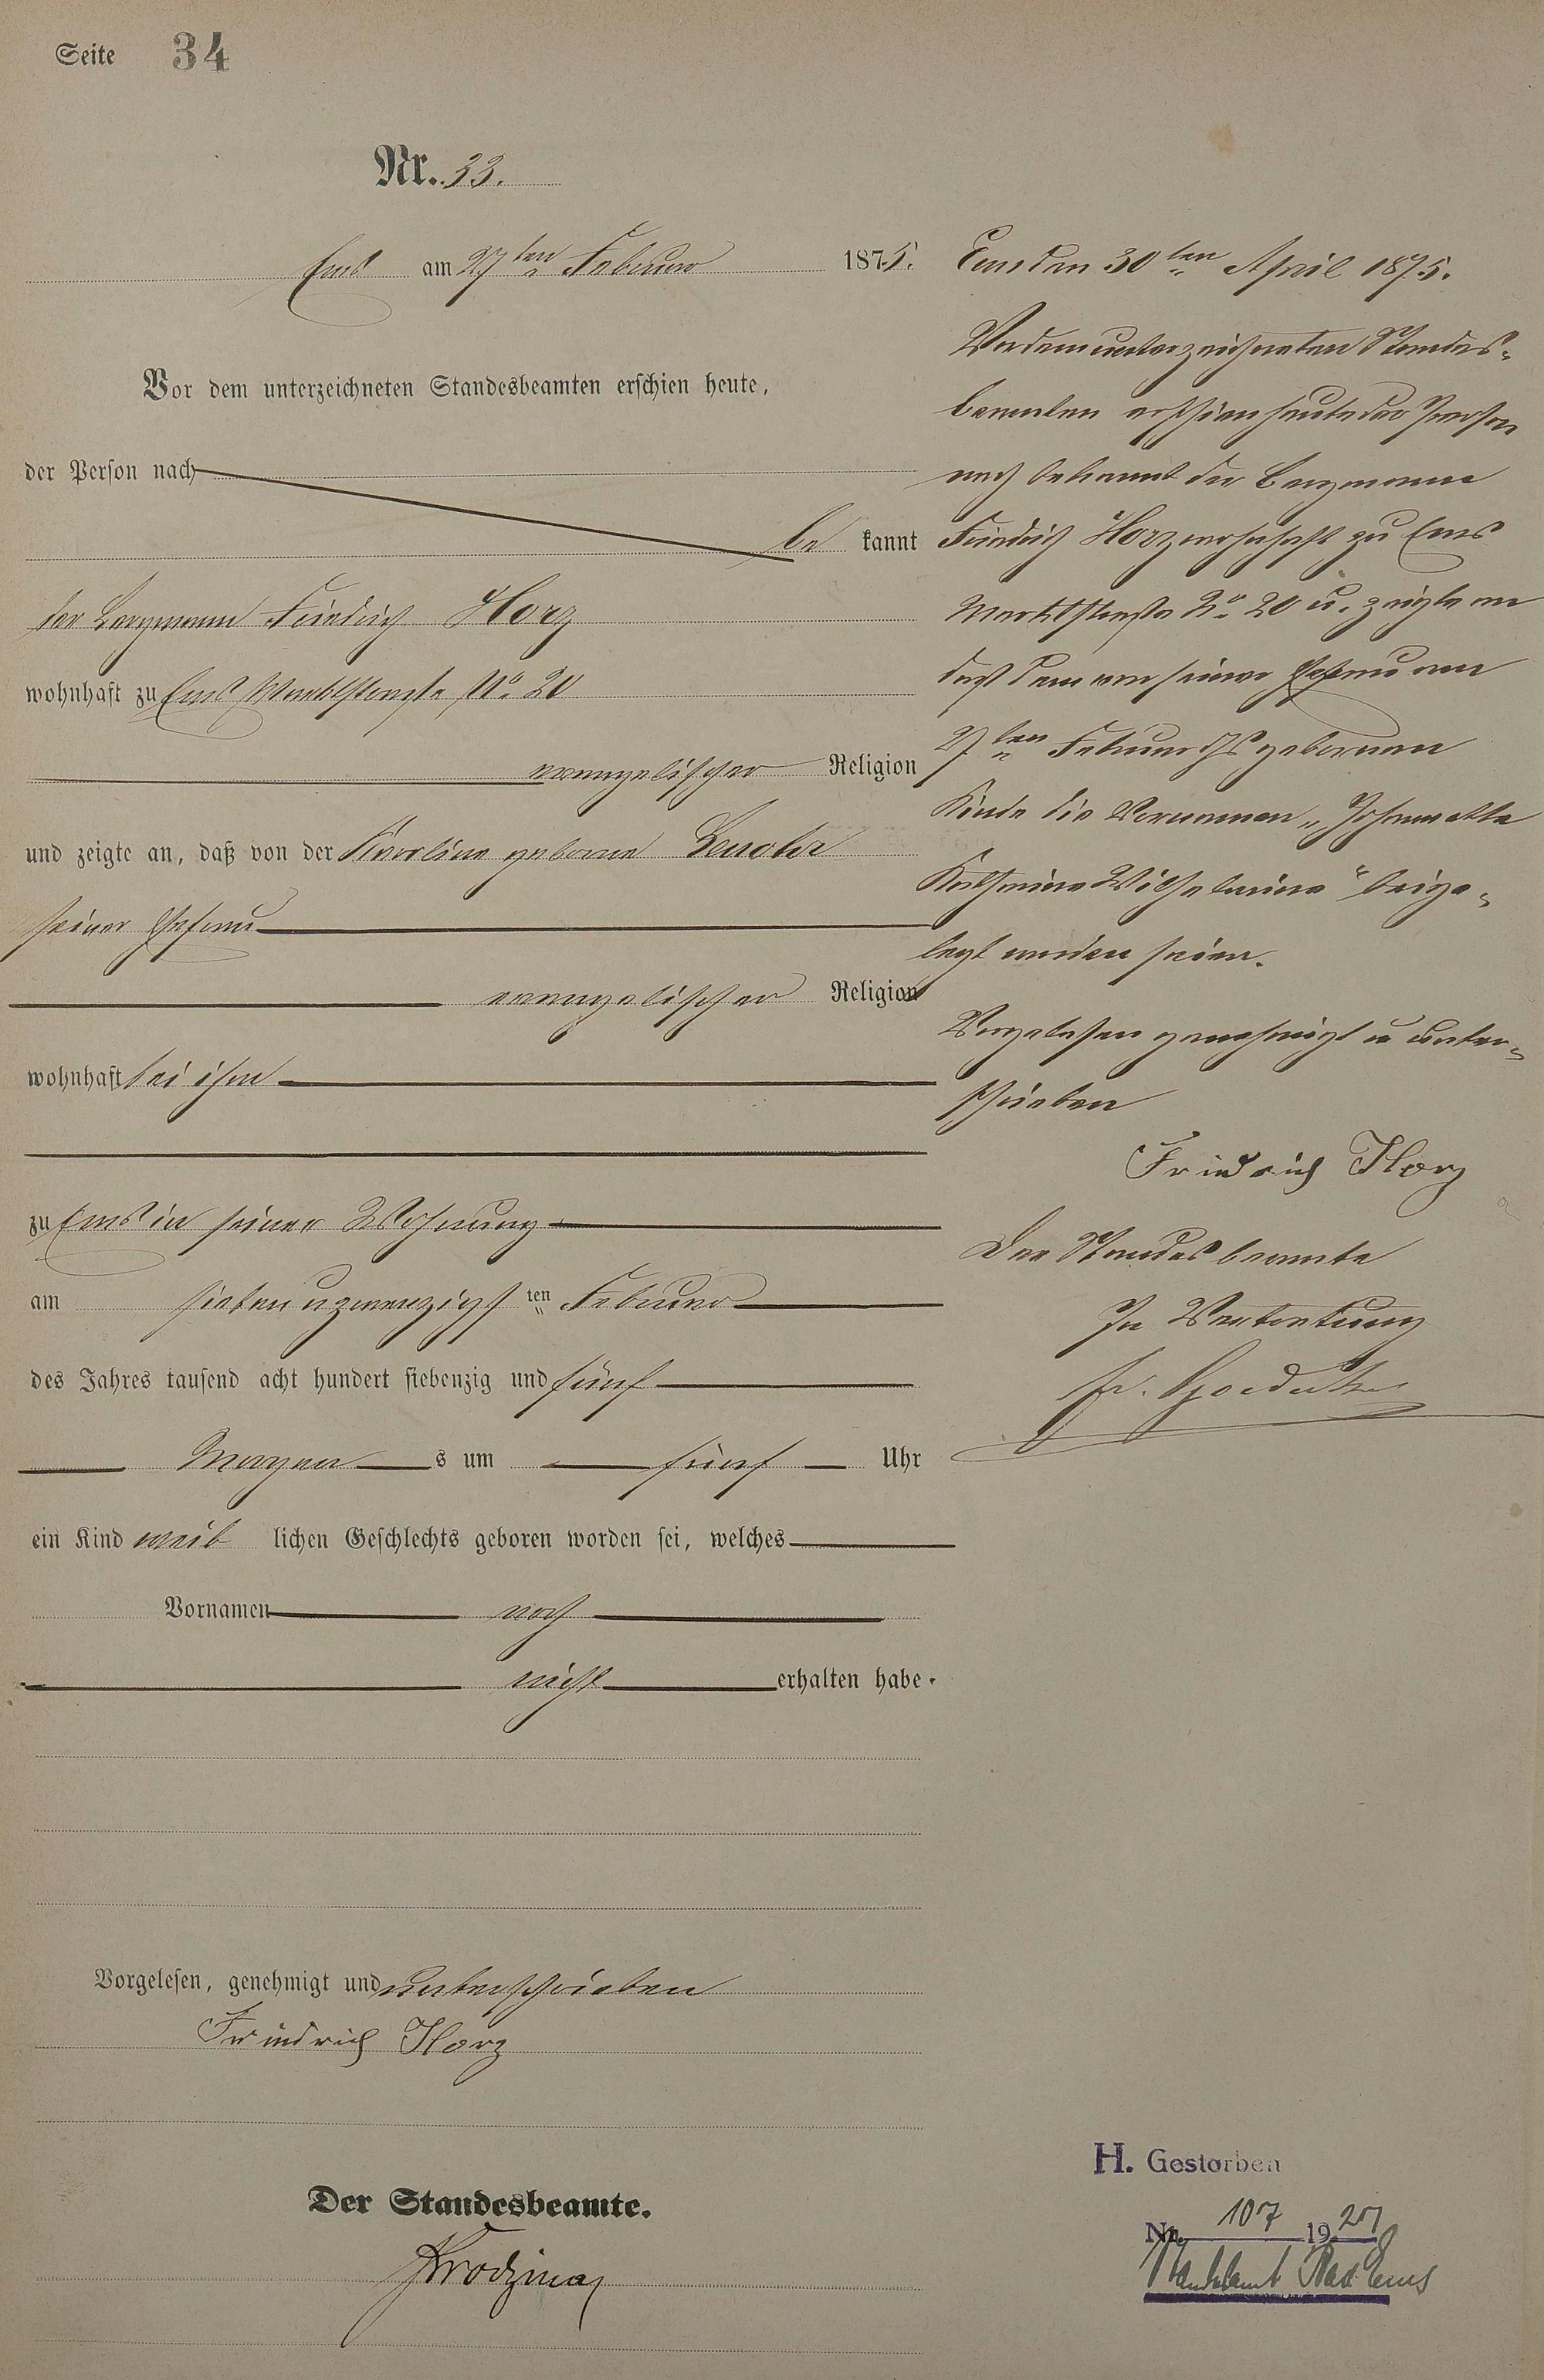 Seite 34
Nr. 33.
Ems am 27ten Februar 1875.
Vor dem unterzeichneten Standesbeamten erschien heute,
der Person nach
be kannt
der Bergmann Friedrich Horz
wohnhaft zu Ems Marktstraße No. 20
evangelischer Religion
und zeigte an, daß von der Karoline geborne
seiner Ehefrau
evangelischer Religion
wohnhaft bei ihm
zu Ems in seiner Wohnung
am siebenuzwanzigsten Februar
des Jahres tausend acht hundert siebenzig und fünf
Morgen s um fünf Uhr
ein Kind weib lichen Geschlechts geboren worden sei, welches
Vornamen noch
nicht erhalten habe.
Vorgelesen, genehmigt und unterschrieben
Friedrich Horz
Der Standesbeamte.
Ems den 30ten April 1875.
Vor dem unterzeichneten Standes-
beamten erschien heute der Person
nach bekannt der Bergmann
Friedrich Horz wohnhaft zu Ems
Marktstraße No. 20 u. zeigte an
daß dem von seiner Ehefrau am
27ten Februar geborenen
Kinde die Vornamen „Johannette
Katharine Wilhelmine“ beige-
legt worden seien.
Vorgelesen genehmigt u unter-
schrieben
Friedrich Horz
Der Standesbeamte
In Vertretung
H. Gestorben
Nr. 107 1927
Standesamt Bad Ems